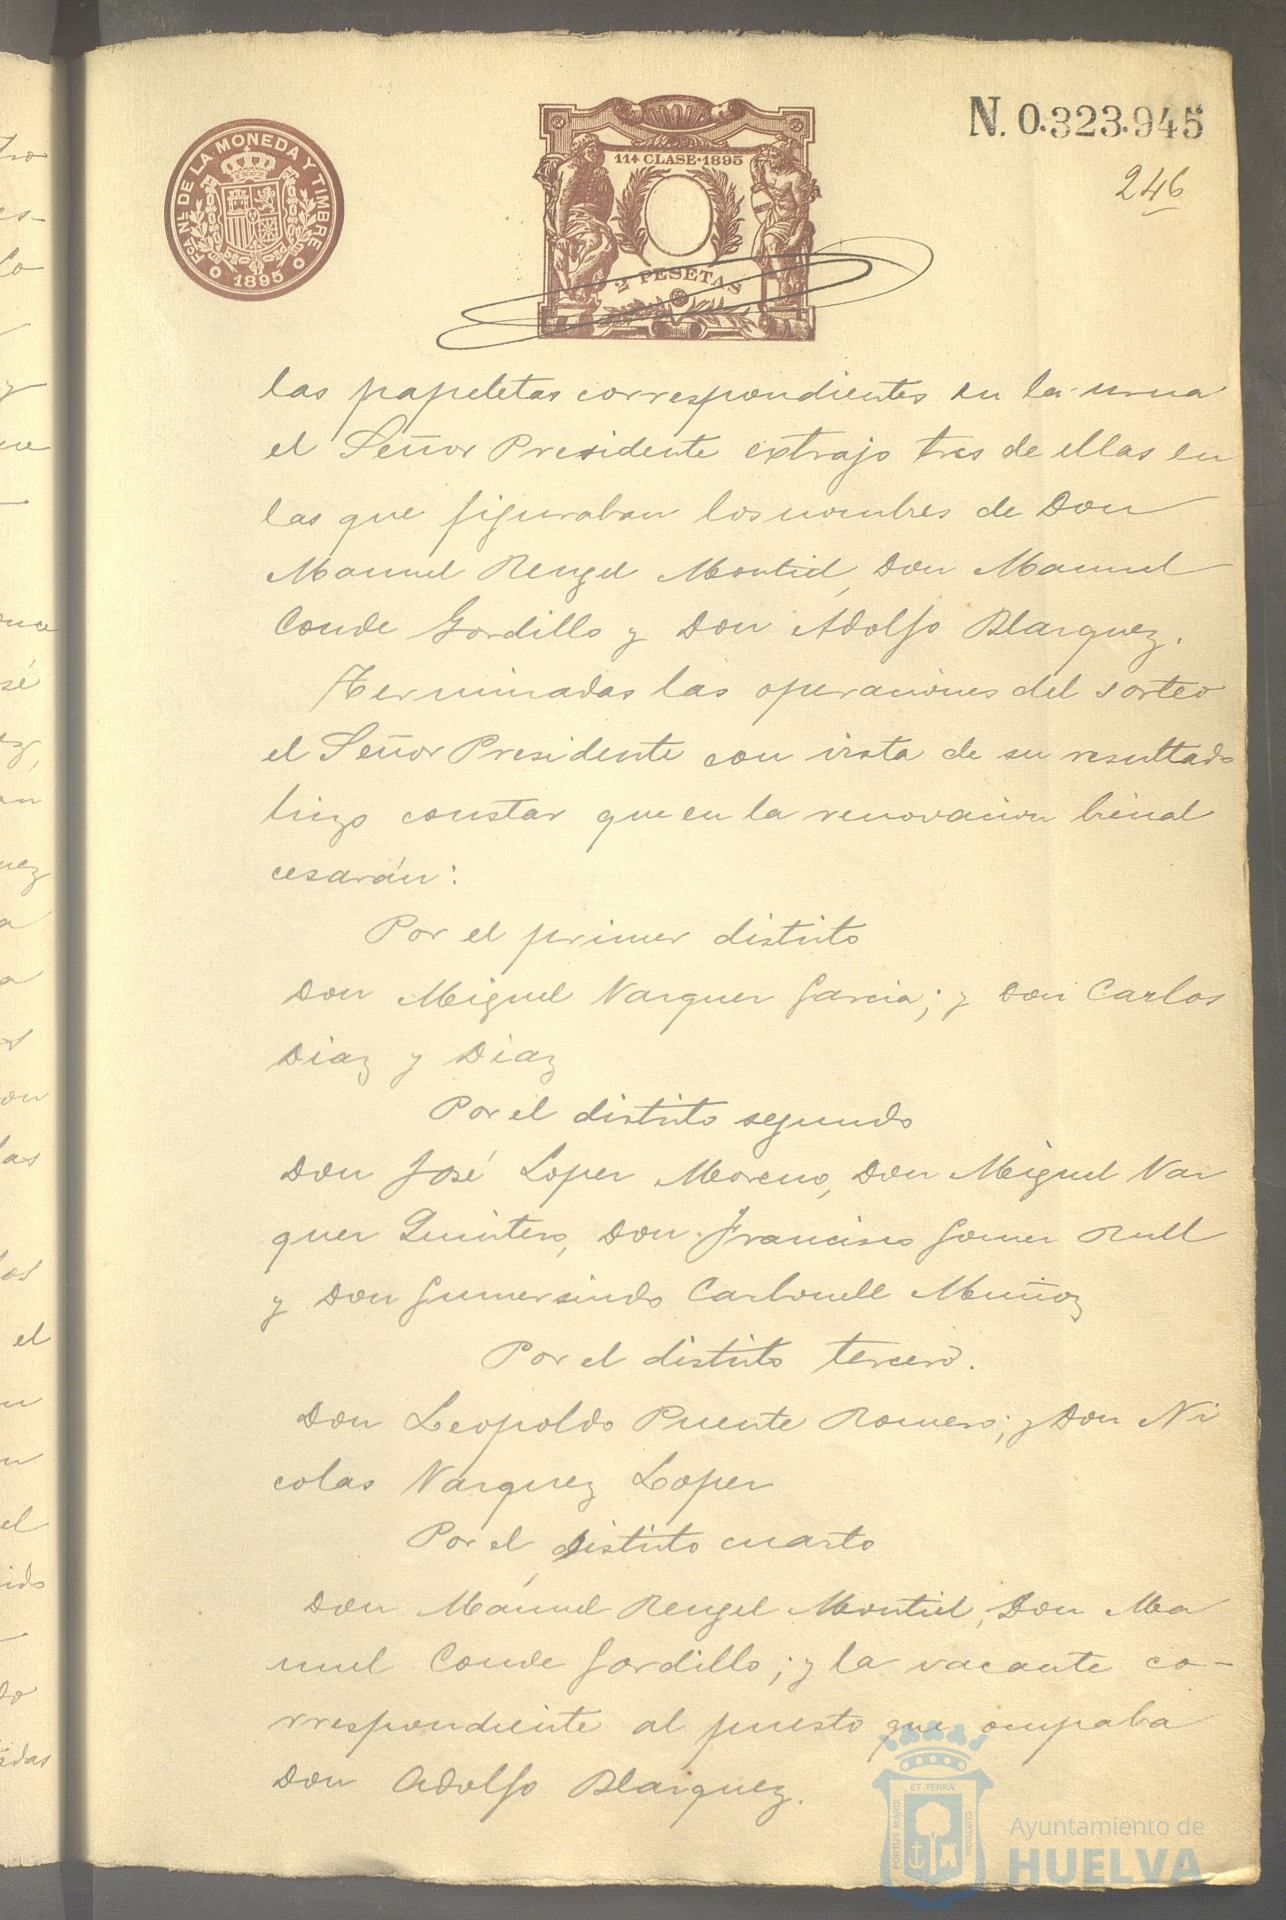 FCA. NL. DE LA MONEDA Y TIMBRE
1895
11ª CLASE·1895
2 PESETAS
N. 0.323.945
246
las papeletas correspondientes en la urna
el Señor Presidente extrajo tres de ellas en
las que figuraban los nombres de Don
Manuel Rengel Montiel, Don Manuel
Conde Gordillo y Don Adolfo Blazquez.
Terminadas las operaciones del sorteo
el Señor Presidente con vista de su resultado
hizo constar que en la renovacion bienal
cesarán:
Por el primer distrito
Don Miguel Vazquez Garcia; y Don Carlos
Diaz y Diaz
Por el distrito segundo
Don José Lopez Moreno, Don Miguel Vaz
quez Quintero, Don Francisco Gomez Rull
y Don Gumersindo Carbonell Muñoz
Por el distrito tercero.
Don Leopoldo Puente Romero; y Don Ni
colas Vazquez Lopez
Por el distrito cuarto
Don Manuel Rengel Montiel, Don Ma
nuel Conde Gordillo; y la vacante co-
rrespondiente al puesto que ocupaba
Don Adolfo Blazquez.
ET TERRÆ
PORTUS MARIS
CUSTODIA
Ayuntamiento de
HUELVA